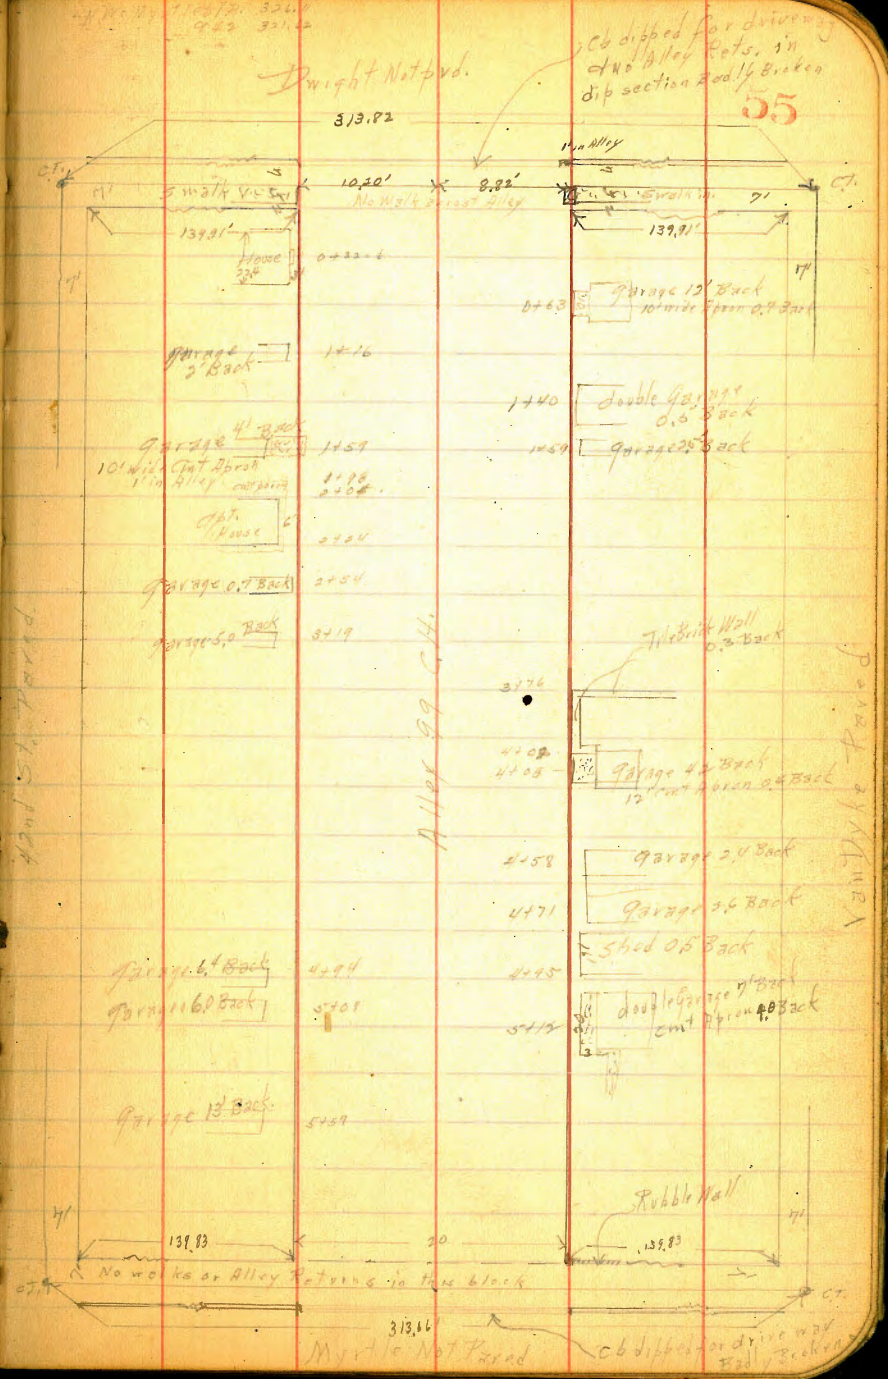 Cb dipped for driveway
and Alley Rets. in
dip section Badly Broken
Dwight Not pvd.
55
313.82
1' in Alley
C.T.
C.T.
10.20'
8.82'
7'
S walk
No Walk across Alley
Swalk in.
7'
139.91'
139.91'
7'
7'
House
23.4
0+22.6
0+63
Garage 12' Back
10' wide Apron 0.7 Back
Garage
2' Back
1+16
1+40
double Garage
0.6' Back
Garage 4' Back
1+59
1+59
Garage 2.5' Back
10' wide Cmt Apron
1' in Alley
1+98
2+04
Apt.
House
6'
2+24
Garage 0.7 Back
2+54
Garage 5.0 Back
3+19
Tile Brick Wall
0.3 Back
3+76
Alley 99 C.H.
42nd St. Paved.
4+02
4+08
Garage 4.2 Back
12' cmt Apron 0.2 Back
4+58
Garage 2.4 Back
4+71
Garage 3.6 Back
Shed 0.5 Back
Garage 6.4 Back
4+94
4+95
Garage 6.0 Back
5+08
5+12
double Garage 7' Back
cmt Apron 4.0 Back
3
Garage 13' Back
5+59
Rubble Wall
7'
7'
139.83
20
139.83
No walks or Alley Returns in this block
C.T.
C.T.
313.66'
Myrtle Not Paved
Cb dipped for drive way
Badly Broken